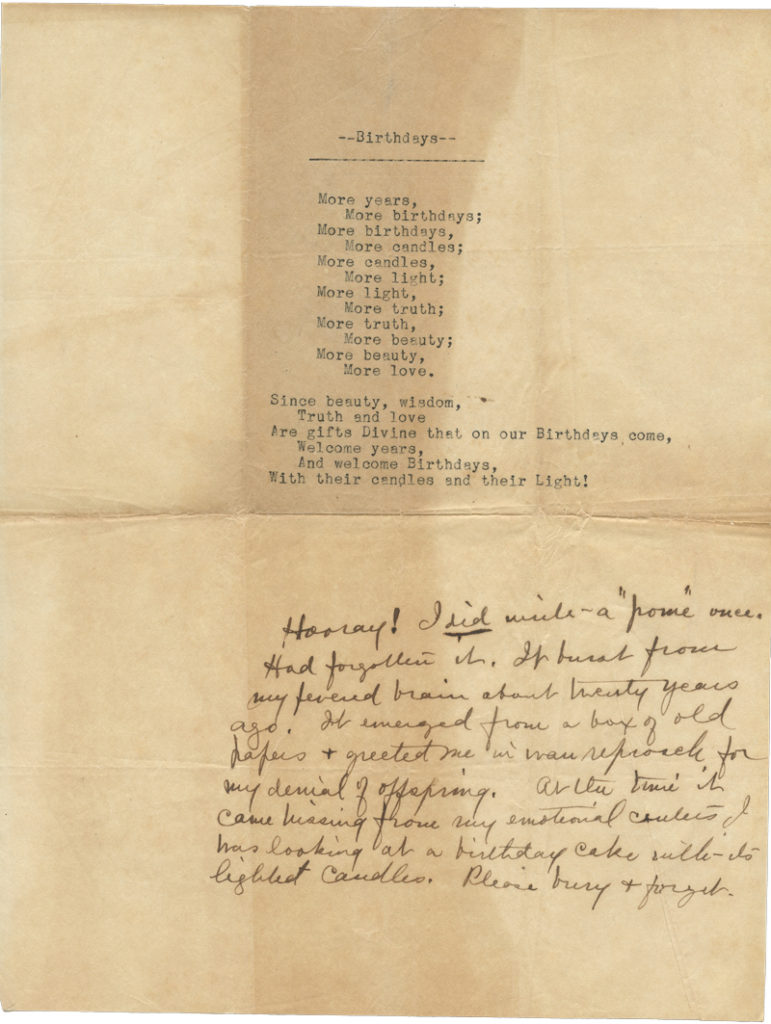 --Birthdays--
More years,
More birthdays;
More birthdays,
More candles;
More candles,
More light;
More light,
More truth;
More truth,
More beauty;
More beauty,
More love.
Since beauty, wisdom,
Truth and love
Are gifts Divine that on our Birthdays come,
Welcome years,
And welcome Birthdays,
With their candles and their Light!
Hooray! I did write a "pome" once.
Had forgotten it. It burst from
my fevered brain about twenty years
ago. It emerged from a box of old
papers + greeted me in wan reproach for
my denial of offspring. At the time it
came hissing from my emotional centers I
was looking at a birthday cake with its
lighted candles. Please bury + forget.